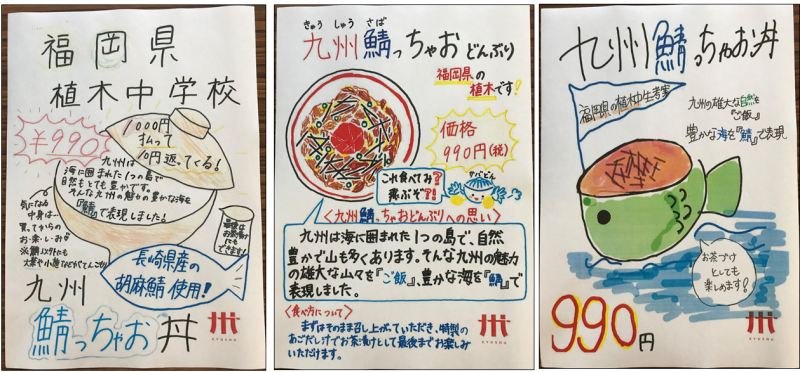 福岡県
植木中学校
¥990
1000円
払って
10円返ってくる!
九州は
海に囲まれた1つの島で
自然もとても豊かです。
そんな九州の魅力の豊かな海を
『鯖』で表現しました!
気になる
中身は…
買ってからの
お・楽・し・み♡
※鯖以外にも
大葉や小葱などがてんこもり
最後は
お茶漬け
にも
できます!
長崎県産の
胡麻鯖使用!
九州
鯖っちゃお丼
KYUSHU
きゅう しゅう さば
九州鯖っちゃおどんぶり
福岡県の
植木です!
価格
990円(税)
これ食べてみ?
飛ぶぞ?!
さばどん
<九州鯖っちゃおどんぶりへの思い>
九州は海に囲まれた1つの島で、自然
豊かで山も多くあります。そんな九州の魅力
の雄大な山々を『ご飯』、豊かな海を『鯖』で
表現しました。
<食べ方について>
まずはそのまま召し上がっていただき、特製の
あごだし汁でお茶漬けとして最後までお楽しみ
いただけます。
KYUSHU
九州鯖っちゃお丼
福岡県の植木中生考案
九州の雄大な自然を
『ご飯』
豊かな海を『鯖』で表現
お茶づけ
としても
楽しめます!
990円
KYUSHU